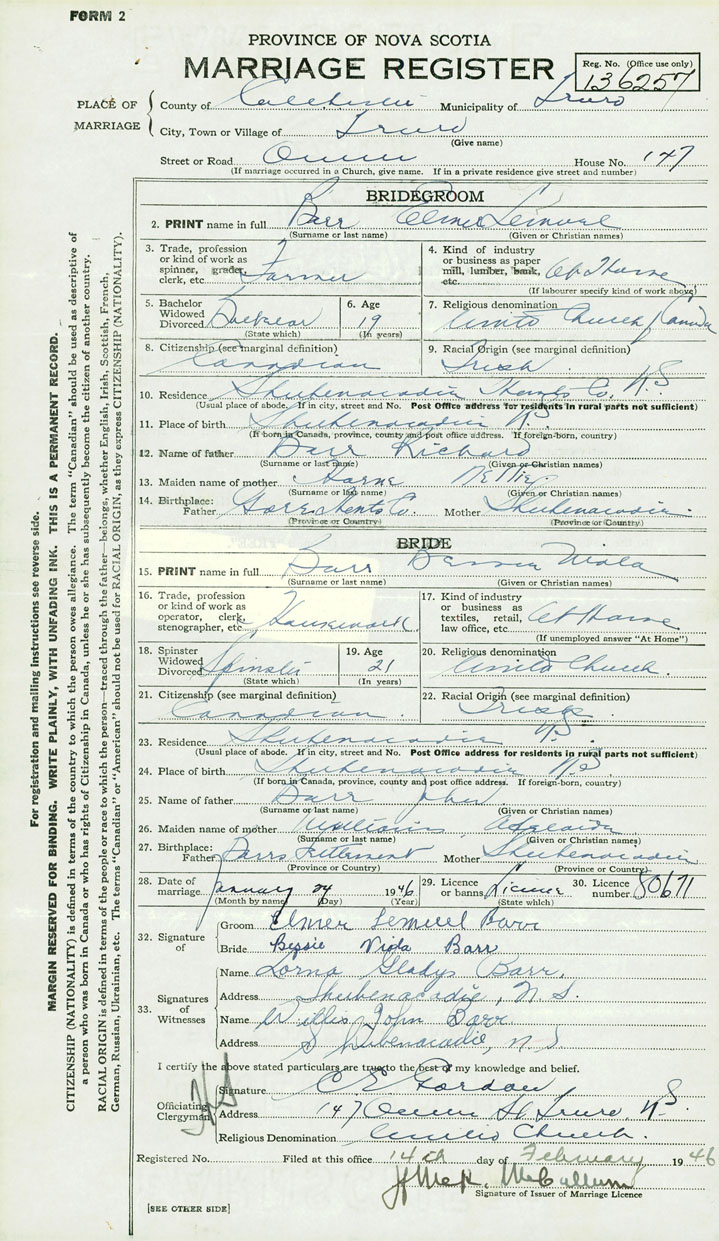 FORM 2
PROVINCE OF NOVA SCOTIA
MARRIAGE REGISTER
Reg. No. (Office use only)
136257
PLACE OF MARRIAGE
County of Colchester Municipality of Truro
City, Town or Village of Truro
(Give name)
Street or Road Queen House No. 147
(If marriage occurred in a Church, give name. If in a private residence give street and number)
BRIDEGROOM
2. PRINT name in full Barr Elmer Lemuel
(Surname or last name) (Given or Christian names)
3. Trade, profession or kind of work as spinner, grader, clerk, etc. Farmer
4. Kind of industry or business as paper mill, lumber, bank, etc. At Home
(If labourer specify kind of work above)
5. Bachelor Widowed Divorced Bachelor
(State which)
6. Age 19
(In years)
7. Religious denomination United Church Canada
8. Citizenship (see marginal definition) Canadian
9. Racial Origin (see marginal definition) Irish
10. Residence Shubenacadie Hants Co. N.S.
(Usual place of abode. If in city, street and No. Post Office address for residents in rural parts not sufficient)
11. Place of birth Shubenacadie N.S.
(If born in Canada, province, county and post office address. If foreign-born, country)
12. Name of father Barr Richard
(Surname or last name) (Given or Christian names)
13. Maiden name of mother Horne Nettie
(Surname or last name) (Given or Christian names)
14. Birthplace: Father Gore Hants Co. Mother Shubenacadie
(Province or Country) (Province or Country)
BRIDE
15. PRINT name in full Barr Bessie Viola
(Surname or last name) (Given or Christian names)
16. Trade, profession or kind of work as operator, clerk, stenographer, etc. Housework
17. Kind of industry or business as textiles, retail, law office, etc. At Home
(If unemployed answer "At Home")
18. Spinster Widowed Divorced Spinster
(State which)
19. Age 21
(In years)
20. Religious denomination United Church.
21. Citizenship (see marginal definition) Canadian.
22. Racial Origin (see marginal definition) Irish
23. Residence Shubenacadie N.S.
(Usual place of abode. If in city, street and No. Post Office address for residents in rural parts not sufficient)
24. Place of birth Shubenacadie N.S.
(If born in Canada, province, county and post office address. If foreign-born, country)
25. Name of father Barr John
(Surname or last name) (Given or Christian names)
26. Maiden name of mother Williams Adelaide
(Surname or last name) (Given or Christian names)
27. Birthplace: Father Barrs Settlement Mother Shubenacadie
(Province or Country) (Province or Country)
28. Date of marriage January 24 1946
(Month by name) (Day) (Year)
29. Licence or banns License
(State which)
30. Licence number 80671
32. Signature of
Groom Elmer Lemuel Barr
Bride Bessie Viola Barr
33. Signatures of Witnesses
Name Lorna Gladys Barr.
Address Shubenacadie, N.S.
Name Willis John Barr
Address Shubenacadie, N.S.
I certify the above stated particulars are true to the best of my knowledge and belief.
Officiating Clergyman
Signature C E Gordon
Address 147 Queen St Truro N.S.
Religious Denomination United Church.
Registered No. Filed at this office 14th day of February 1946
Signature of Issuer of Marriage Licence
[SEE OTHER SIDE]
For registration and mailing instructions see reverse side.
MARGIN RESERVED FOR BINDING. WRITE PLAINLY, WITH UNFADING INK. THIS IS A PERMANENT RECORD.
CITIZENSHIP (NATIONALITY) is defined in terms of the country to which the person owes allegiance. The term "Canadian" should be used as descriptive of
a person who was born in Canada or who has rights of Citizenship in Canada, unless he or she has subsequently become the citizen of another country.
RACIAL ORIGIN is defined in terms of the people or race to which the person—traced through the father—belongs, whether English, Irish, Scottish, French,
German, Russian, Ukrainian, etc. The terms "Canadian" or "American" should not be used for RACIAL ORIGIN, as they express CITIZENSHIP (NATIONALITY).